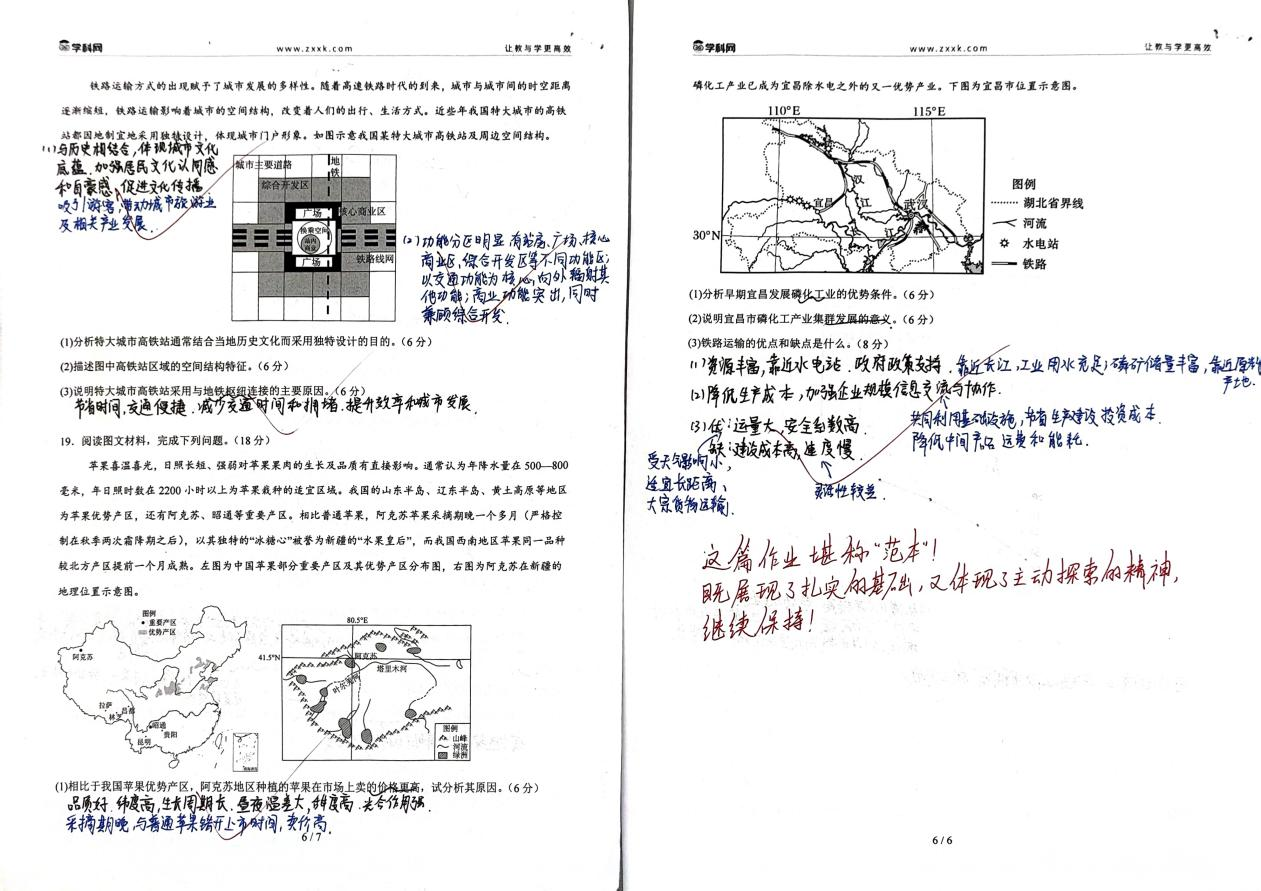 学科网
www.zxxk.com
让教与学更高效
铁路运输方式的出现赋予了城市发展的多样性。随着高速铁路时代的到来，城市与城市间的时空距离
逐渐缩短，铁路运输影响着城市的空间结构，改变着人们的出行、生活方式。近些年我国特大城市的高铁
站都因地制宜地采用独特设计，体现城市门户形象。如图示意我国某特大城市高铁站及周边空间结构。
(1)与历史相结合，体现城市文化
底蕴.加强居民文化认同感
和自豪感.促进文化传播.
吸引游客，带动城市旅游业
及相关产业发展.
城市主要道路
地铁
综合开发区
广场
核心商业区
换乘空间
站内商业
广场
铁路线网
(2)功能分区明显有站房、广场、核心
商业区、综合开发区等不同功能区;
以交通功能为核心，向外辐射其
他功能;商业功能突出，同时
兼顾综合开发.
(1)分析特大城市高铁站通常结合当地历史文化而采用独特设计的目的。(6分)
(2)描述图中高铁站区域的空间结构特征。(6分)
(3)说明特大城市高铁站采用与地铁枢纽连接的主要原因。(6分)
节省时间，交通便捷.减少交通时间和拥堵.提升效率和城市发展.
19．阅读图文材料，完成下列问题。(18分)
苹果喜温喜光，日照长短、强弱对苹果果肉的生长及品质有直接影响。通常认为年降水量在500—800
毫米，年日照时数在2200小时以上为苹果栽种的适宜区域。我国的山东半岛、辽东半岛、黄土高原等地区
为苹果优势产区，还有阿克苏、昭通等重要产区。相比普通苹果，阿克苏苹果采摘期晚一个多月（严格控
制在秋季两次霜降期之后），以其独特的“冰糖心”被誉为新疆的“水果皇后”，而我国西南地区苹果同一品种
较北方产区提前一个月成熟。左图为中国苹果部分重要产区及其优势产区分布图，右图为阿克苏在新疆的
地理位置示意图。
图例
重要产区
优势产区
阿克苏
拉萨
林芝
昌都
昭通
贵阳
昆明
80.5°E
41.5°N
阿克苏
塔里木河
叶尔羌河
图例
山峰
河流
绿洲
(1)相比于我国苹果优势产区，阿克苏地区种植的苹果在市场上卖的价格更高，试分析其原因。(6分)
品质好.纬度高，生长周期长.昼夜温差大，纬度高.光合作用强.
采摘期晚，与普通苹果错开上市时间，卖价高.
6/7
学科网
www.zxxk.com
让教与学更高效
磷化工产业已成为宜昌除水电之外的又一优势产业。下图为宜昌市位置示意图。
110°E
115°E
30°N
汉
江
宜昌
武汉
长
江
图例
湖北省界线
河流
水电站
铁路
(1)分析早期宜昌发展磷化工业的优势条件。(6分)
(2)说明宜昌市磷化工产业集群发展的意义。(6分)
(3)铁路运输的优点和缺点是什么。(8分)
(1)资源丰富，靠近水电站.政府政策支持.靠近长江，工业用水充足;磷矿储量丰富，靠近原料
产地.
(2)降低生产成本，加强企业规模信息交流与协作.
共同利用基础设施，节省生产建设投资成本.
降低中间产品运费和能耗.
(3)优:运量大.安全系数高.
缺:建设成本高，速度慢.
灵活性较差.
受天气影响小，
适宜长距离、
大宗货物运输.
这篇作业堪称“范本”！
既展现了扎实的基础，又体现了主动探索的精神，
继续保持！
6/6